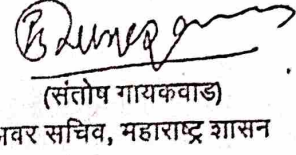 (संतोष गायकवाड)
वर सचिव, महाराष्ट्र शासन